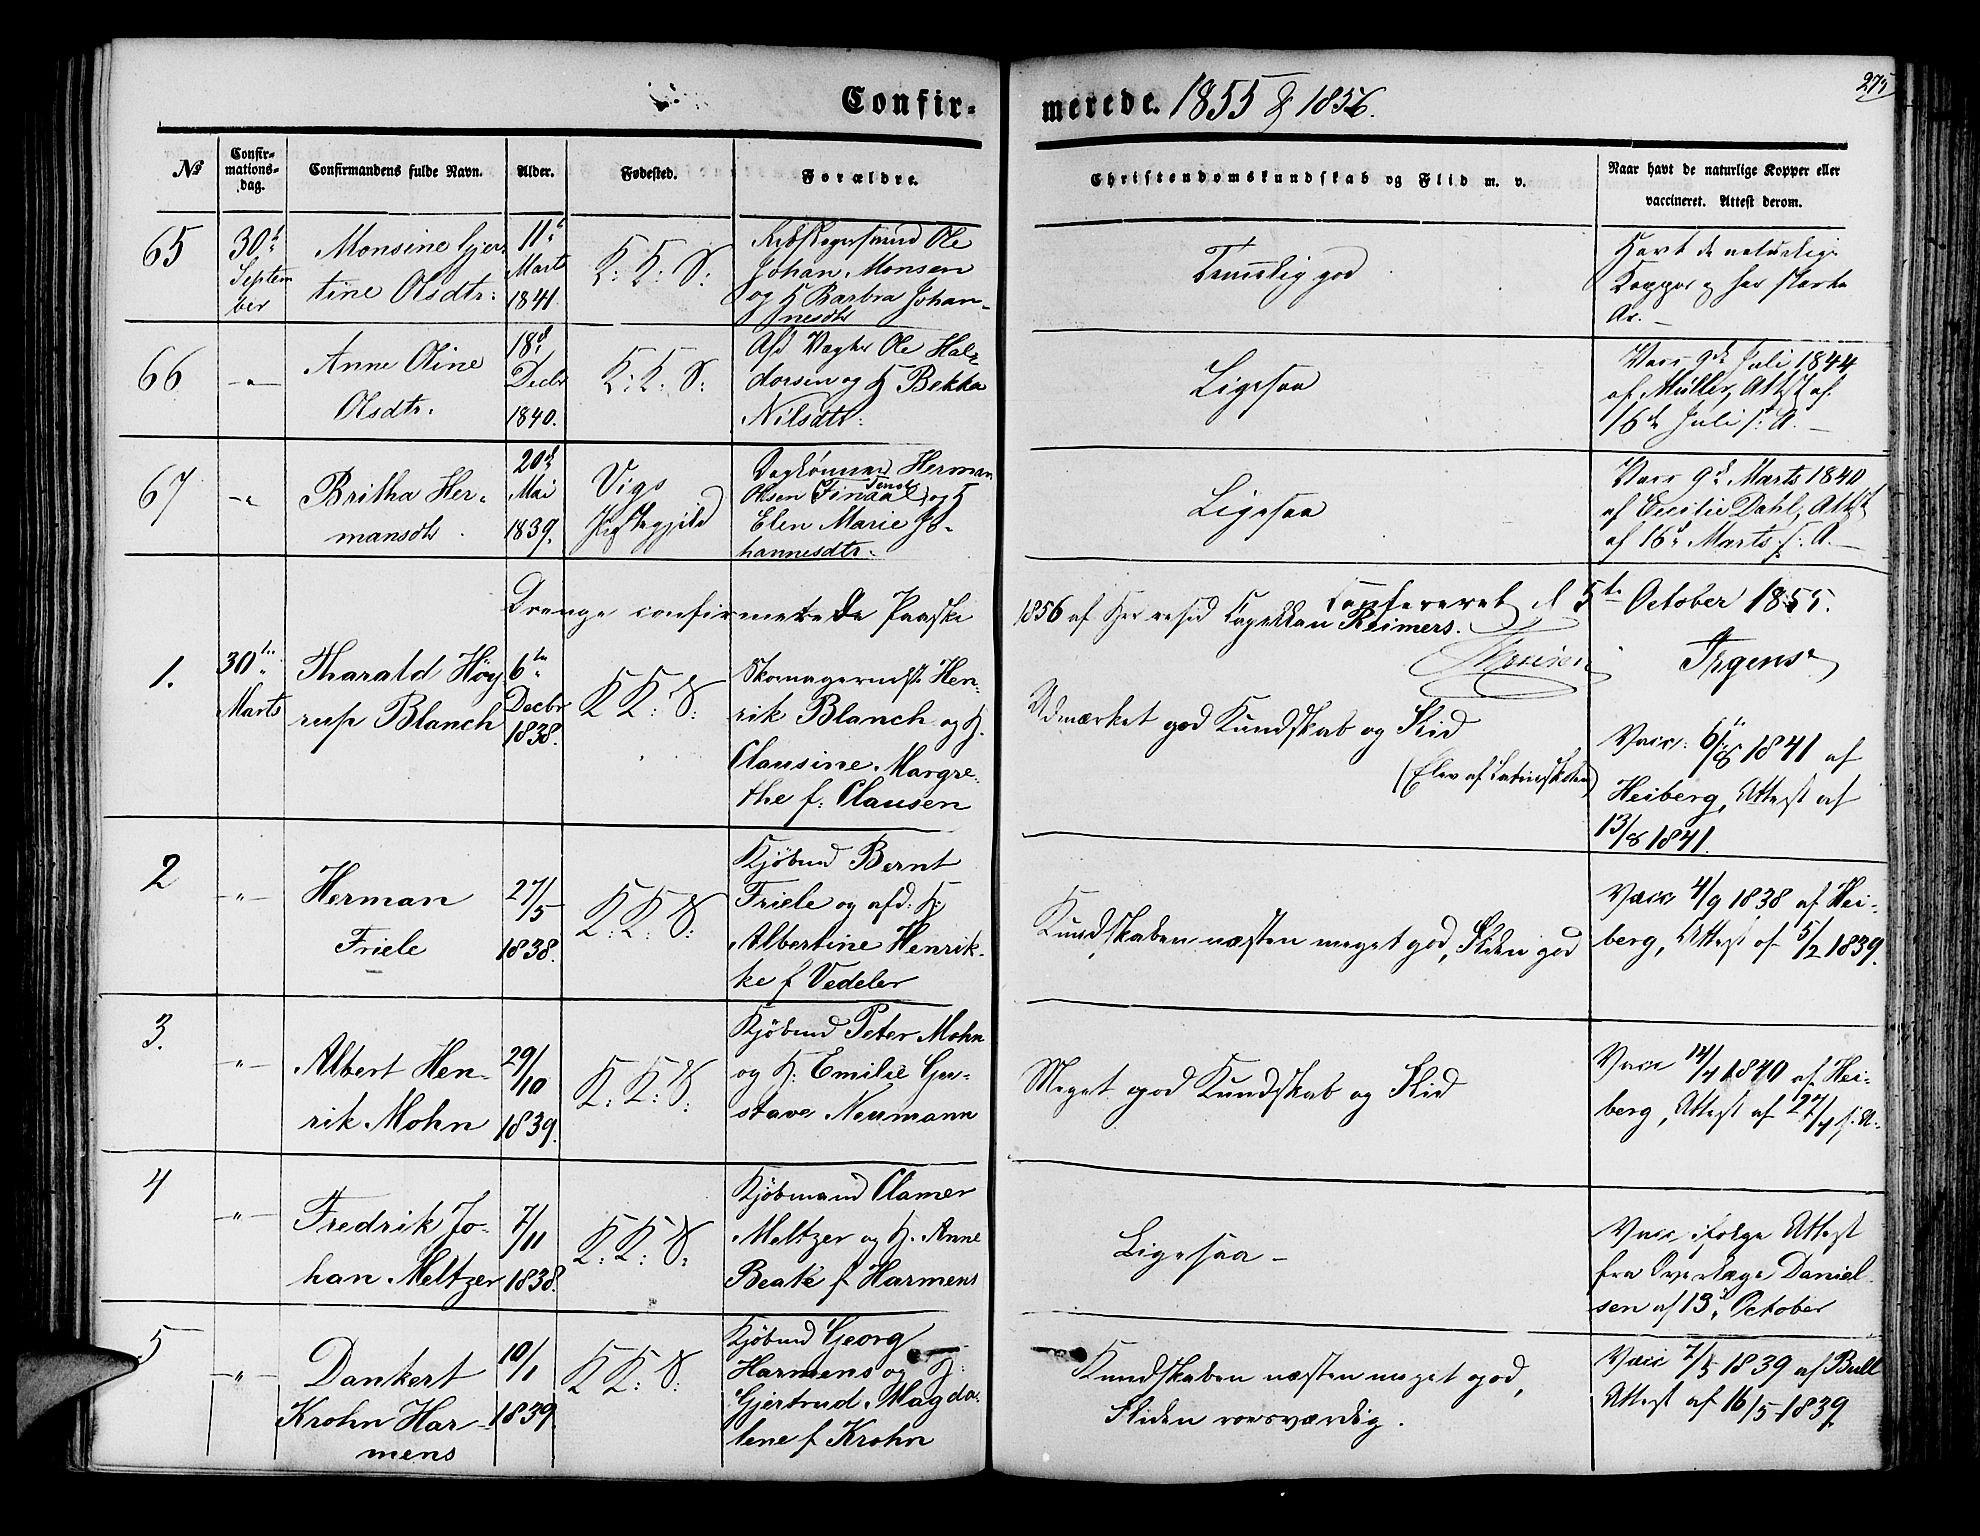 275
Confirmerede. 1855 & 1856.
№ Confirmationsdag. Confirmandens fulde Navn. Alder. Fødested. Forældre. Christendomskundskab og Flid m. v. Naar havt de naturlige Kopper eller vaccineret. Attest derom.
65
30t
September
Monsine Gjertine Olsdtr:
11t
Marts
1841.
K: K: S:
Ole
Johan Monsen
og H Barbra Johannesdtr
Temmelig god
Havt de naturlige
Kopper og har stærke
Ar. —
66
—"—
Anne Oline
Olsdtr.
18d
Decbr
1840.
K: K: S:
Afd Vægter Ole Haldorsen og H Bekka
Nilsdtr:
Ligesaa
Vacc 9de Juli 1844
af Müller, Attest af
16de Juli s: A. —
67
—"
Britha Hermansdtr.
20d
Mai
1839.
Vigs
Præstegjeld
Herman
Olsen og H
Elen Marie Johannesdtr.
Ligesaa
Vacc 9d Marts 1840
af Cecilie Dahl, Attst
af 16d Marts s: A. —
Confereret d 5te October 1855.
Irgens
Drenge confirmerede Paaske 1856 af Hr resid Capellan Reimers.
1.
30te
Marts
Tharald Höyrup Blanch
6te
Decbr
1838.
K K: S:
Skomagermst. Henrik Blanch og H.
Clausine Margrethe f: Clausen
Udmærket god Kundskab og Flid
(Elev af Latinskolen)
Vacc: 6te/8 1841 af
Heiberg, Attest af
13/8 1841.
2
—"—
Herman
Friele
27/5
1838.
K: K: S:
Kjøbmd Bernt
Friele og afd: H:
Albertine Henrikke f Vedeler
Kundskaben næsten meget god, Fliden god
Vacc 4/9 1838 af Heiberg, Attest af 5/2 1839.
3.
—"—
Albert Henrik Mohn
29/10
1839.
K: K: S:
Kjøbmd Peter Mohn
og H: Emilie Gustave Neumann
Meget god Kundskab og Flid
Vacc 14/4 1840 af Heiberg, Attest af 27/4 s. A.
4
—"—
Fredrik Johan Meltzer
7/11
1838.
K: K: S:
Kjøbmand Clamer
Meltzer og H. Anne
Beate f Harmens
Ligesaa —
Vacc ifølge Attest
fra Overlæge Danielsen af 13d October
5
—"—
Dankert
Krohn Harmens
10/1
1839.
K K: S:
Kjøbmd Georg
Harmens og H:
Gjertrud Magdalene f Krohn
Kundskaben næsten meget god,
Fliden rosværdig.
Vacc 7/5 1839 af Bull
Attest af 16/5 1839.